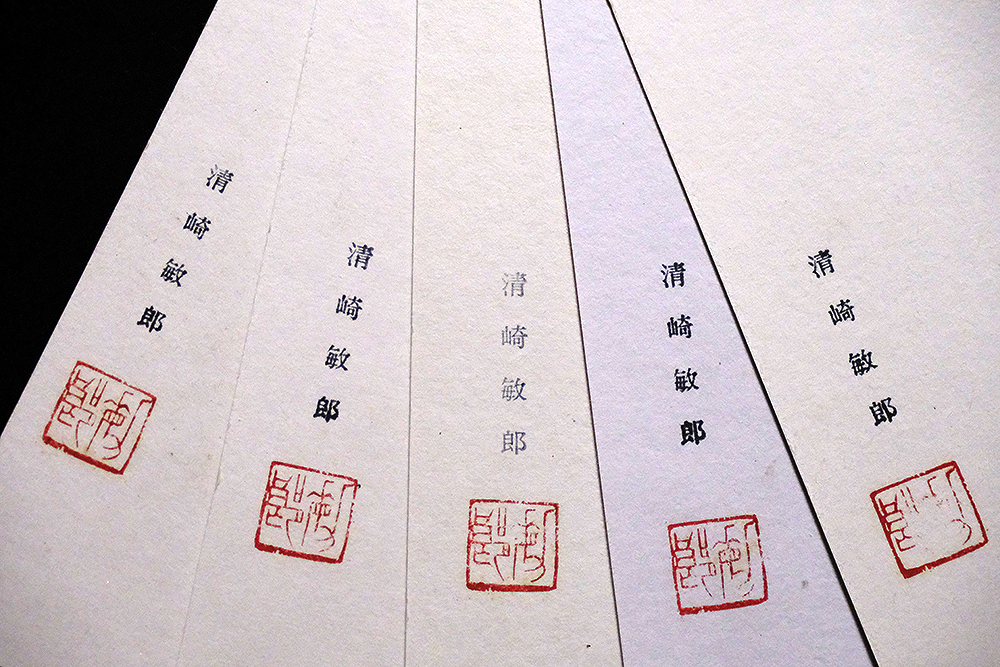 清崎敏郎
清崎敏郎
清崎敏郎
清崎敏郎
清崎敏郎